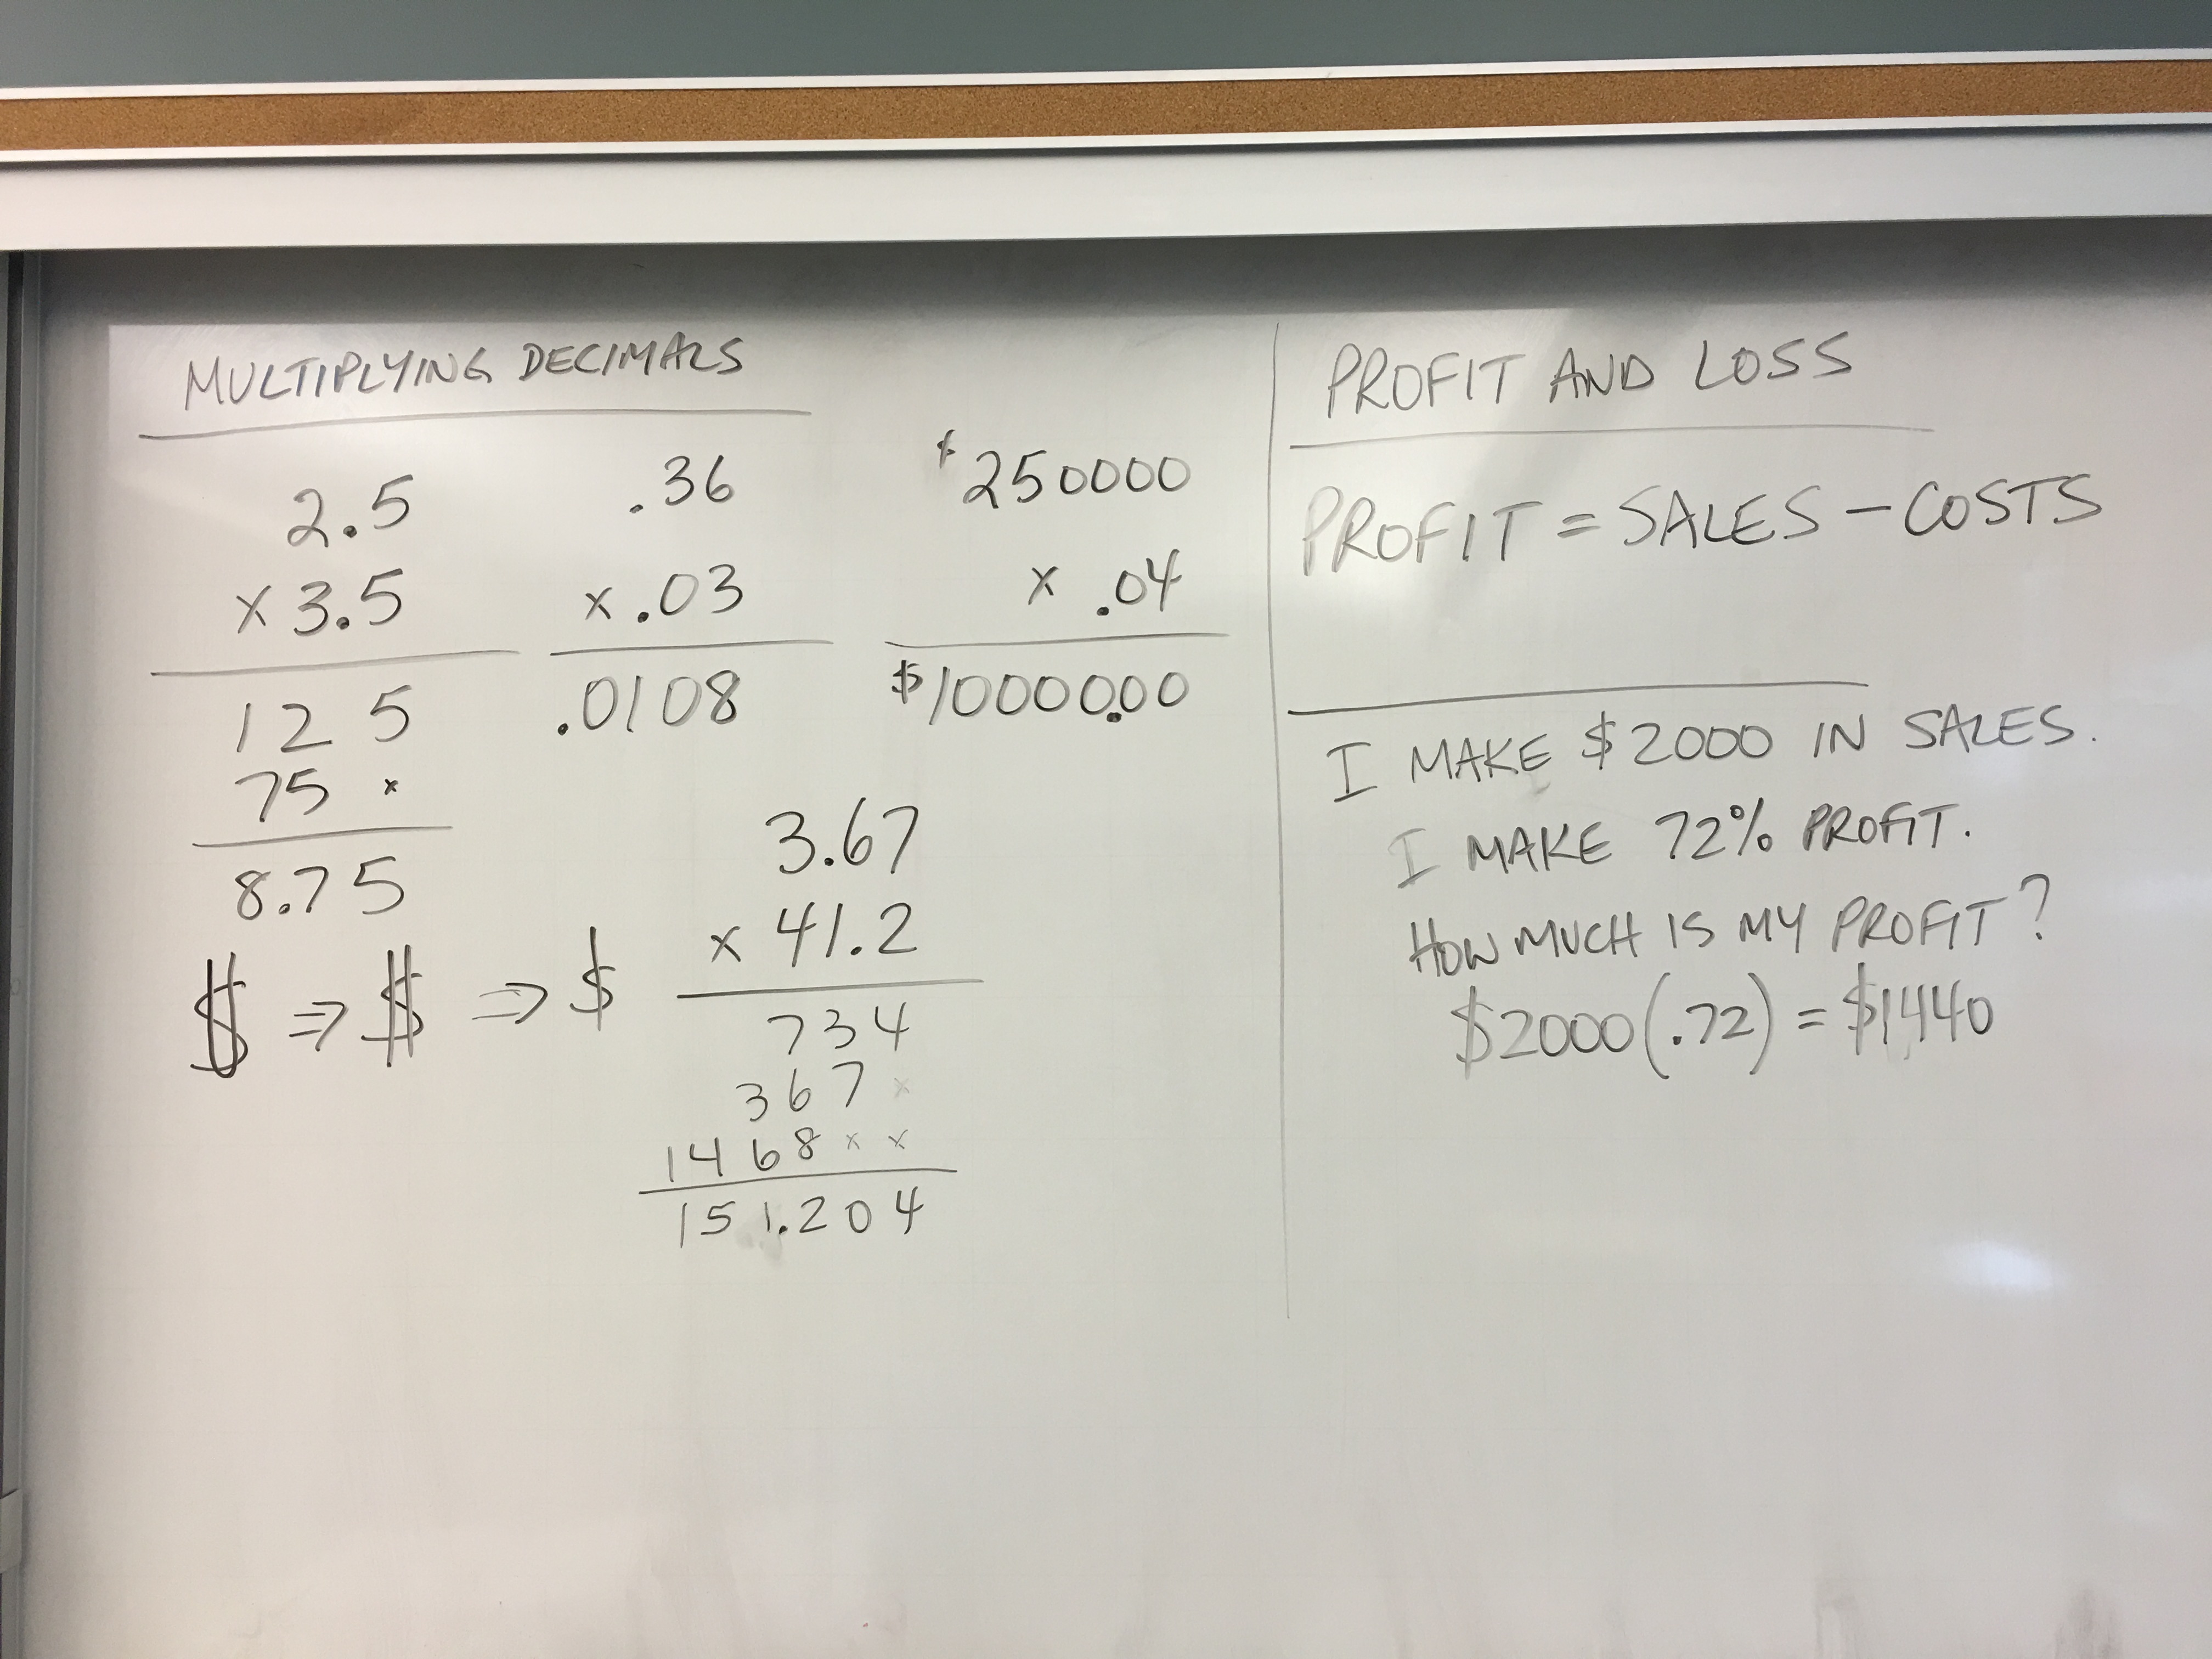 MULTIPLYING DECIMALS
2.5
x 3.5
125
75 x
8.75
.36
x .03
.0108
$250000
x .04
$10000.00
$ ⇒ $ ⇒ $
3.67
x 41.2
734
367 x
1468 x x
151.204
PROFIT AND LOSS
PROFIT = SALES - COSTS
I MAKE $2000 IN SALES.
I MAKE 72% PROFIT.
HOW MUCH IS MY PROFIT?
$2000(.72) = $1440